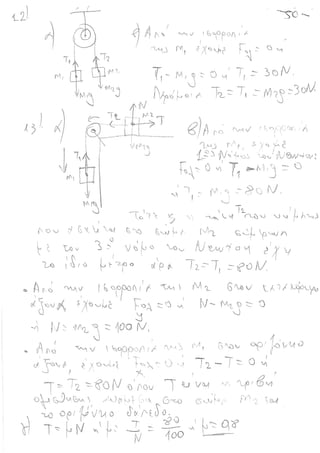 12) α) β) Από την ισορροπία
της m₁ έχουμε Fολ = 0 ή
T₁ - m₁g = 0 ή T₁ = 30N.
Παρόμοια T₂ = T₁ = m₂g = 30N
13) α) β) Από την ισορροπία
της m₁ έχουμε
1ος Νόμος του Νεύτωνα:
Fολ = 0 ή T₁ - m₁g = 0
ή T₁ = m₁g = 80N.
Τότε και η τάση T₂ του νήματος
που ασκείται στο σώμα m₂ σύμφωνα
με τον 3ο νόμο του Νεύτωνα έχει
το ίδιο μέτρο άρα T₂ = T₁ = 80N.
• Από την ισορροπία της m₂ στον κατακόρυφο
άξονα έχουμε Fολy = 0 ή N - m₂g = 0
ή N = m₂g = 100N.
• Από την ισορροπία της m₂ στον οριζόντιο
άξονα, έχουμε Fολx = 0 ή T₂ - T = 0 ή
T = T₂ = 80N όπου T είναι η τριβή
ανάμεσα στο σώμα m₂ και
το οριζόντιο δάπεδο.
γ) T = μN ή μ = T/N = 80/100 ή μ = 0,8